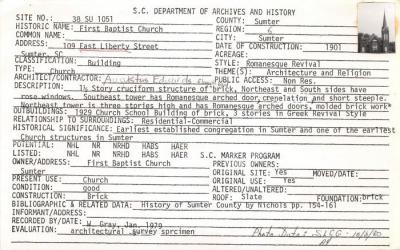 S.C. DEPARTMENT OF ARCHIVES AND HISTORY
SITE NO.: 38 SU 1051 COUNTY: Sumter
HISTORIC NAME: First Baptist Church REGION: 6
COMMON NAME: CITY: Sumter
ADDRESS: 109 East Liberty Street DATE OF CONSTRUCTION: 1901
Sumter, SC ACREAGE:
CLASSIFICATION: Building STYLE: Romanesque Revival
TYPE: Church THEME(S): Architecture and Religion
ARCHITECT/CONTRACTOR: Augustus Edwards PUBLIC ACCESS: Non Res.
DESCRIPTION: 1½ Story cruciform structure of brick, Northeast and South sides have
rose windows. Southeast tower has Romanesque arched door, crenelation and short steeple.
Northeast tower is three stories high and has Romanesque arched doors, molded brick work
OUTBUILDINGS: 1929 Church School Building of brick, 3 stories in Greek Revival Style
RELATIONSHIP TO SURROUNDINGS: Residential-Commercial
HISTORICAL SIGNIFICANCE: Earliest established congregation in Sumter and one of the earliest
Church structures in Sumter
POTENTIAL: NHL NR NRHD HABS HAER
LISTED: NHL NR NRHD HABS HAER S.C. MARKER PROGRAM
OWNER/ADDRESS: First Baptist Church PREVIOUS OWNERS:
Sumter ORIGINAL SITE: Yes MOVED/DATE:
PRESENT USE: Church ORIGINAL USE: Yes
CONDITION: good ALTERED/UNALTERED:
CONSTRUCTION: Brick ROOF: Slate FOUNDATION: brick
BIBLIOGRAPHIC & RELATED DATA: History of Sumter County by Nichols pp. 154-161
INFORMANT/ADDRESS:
RECORDED BY/DATE: W. Gray, Jan. 1979
EVALUATION: architectural survey specimen Photo Data: SLCG - 10/8/80